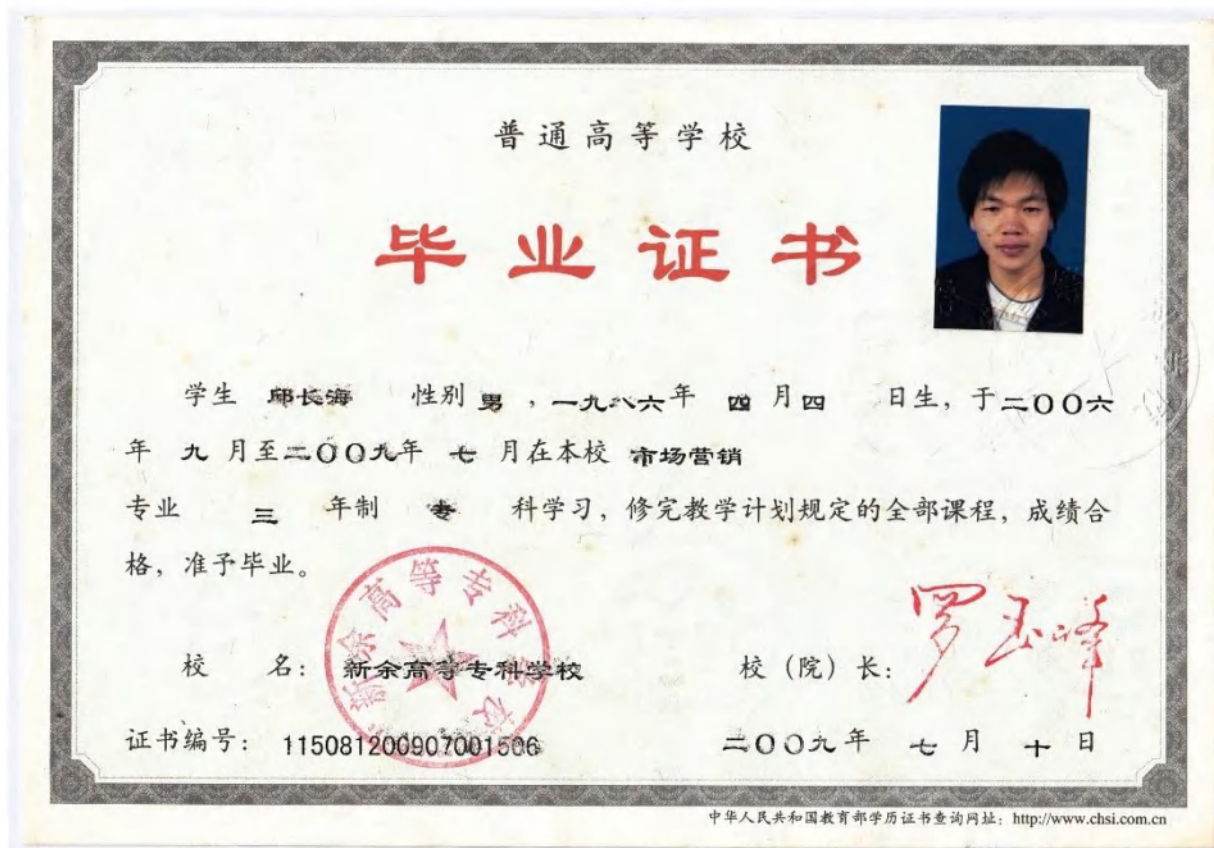 普通高等学校
毕业证书
学生 邱长海 性别 男 ，一九八六年 四 月四 日生，于二〇〇六
年 九 月至二〇〇九年 七 月在本校 市场营销
专业 三 年制 专 科学习，修完教学计划规定的全部课程，成绩合
格，准予毕业。
新余高等专科学校
校 名： 新余高等专科学校 校（院）长： 罗玉峰
证书编号： 115081200907001506 二〇〇九年 七 月 十 日
中华人民共和国教育部学历证书查询网址：http://www.chsi.com.cn